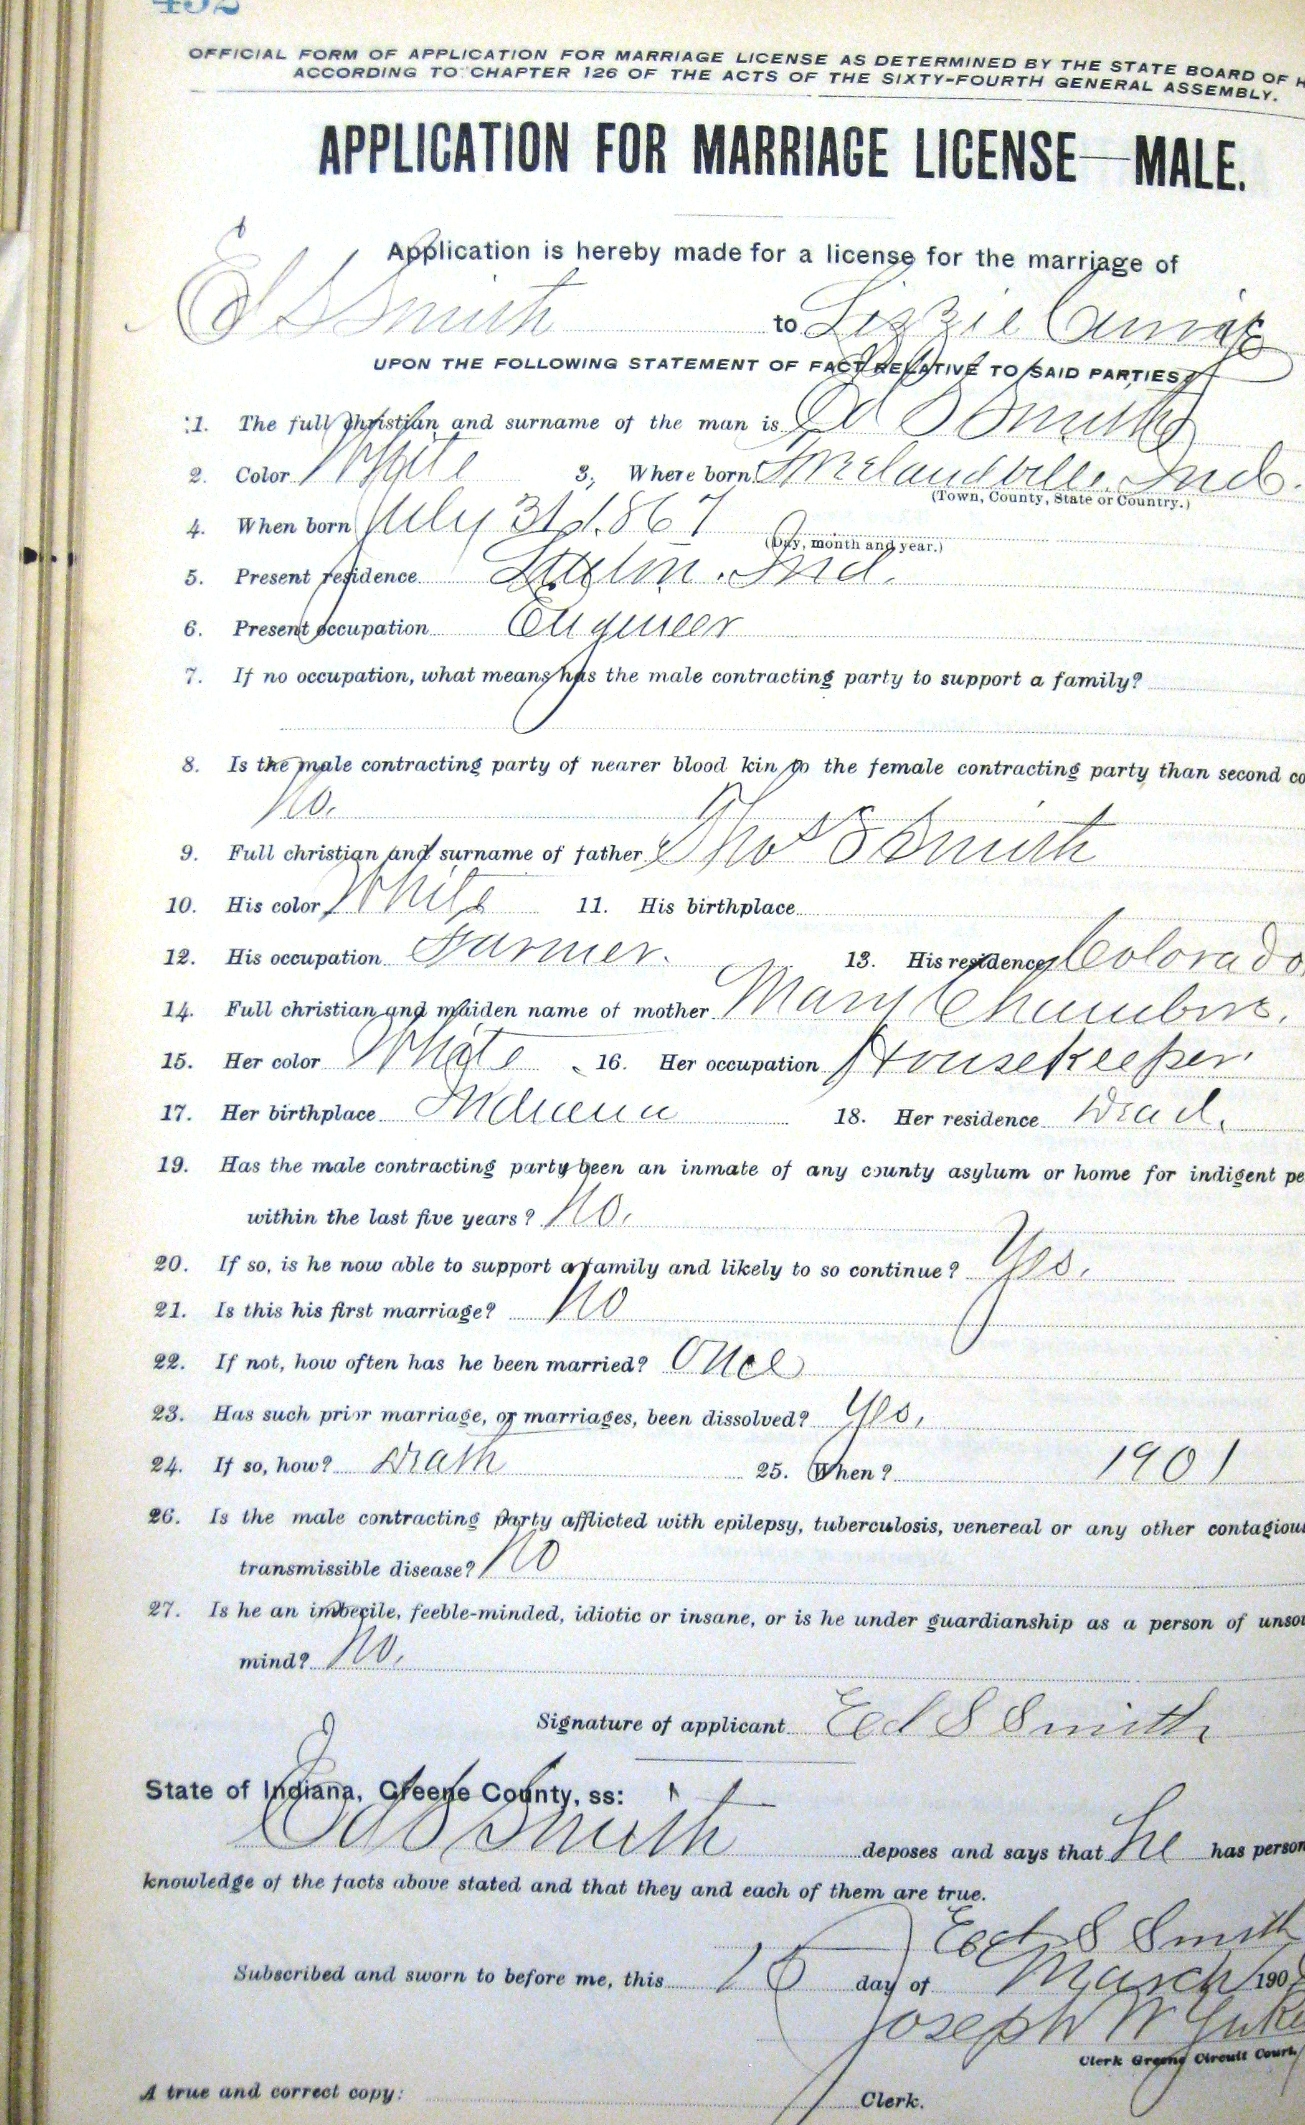 452
OFFICIAL FORM OF APPLICATION FOR MARRIAGE LICENSE AS DETERMINED BY THE STATE BOARD OF H
ACCORDING TO CHAPTER 126 OF THE ACTS OF THE SIXTY-FOURTH GENERAL ASSEMBLY.
APPLICATION FOR MARRIAGE LICENSE—MALE.
Application is hereby made for a license for the marriage of
Ed S Smith to Lizzie
UPON THE FOLLOWING STATEMENT OF FACT RELATIVE TO SAID PARTIES:
1. The full christian and surname of the man is Ed S Smith
2. Color White 3. Where born Ind.
(Town, County, State or Country.)
4. When born July 31 1867
(Day, month and year.)
5. Present residence Linton. Ind.
6. Present occupation Engineer
7. If no occupation, what means has the male contracting party to support a family?
8. Is the male contracting party of nearer blood kin to the female contracting party than second co
No.
9. Full christian and surname of father Thos S Smith
10. His color White 11. His birthplace
12. His occupation Farmer. 13. His residence Colorado
14. Full christian and maiden name of mother Mary Chambers.
15. Her color White 16. Her occupation Housekeeper.
17. Her birthplace Indiana 18. Her residence Dead.
19. Has the male contracting party been an inmate of any county asylum or home for indigent pe
within the last five years? No.
20. If so, is he now able to support a family and likely to so continue? Yes.
21. Is this his first marriage? No
22. If not, how often has he been married? Once
23. Has such prior marriage, or marriages, been dissolved? Yes.
24. If so, how? Death 25. When? 1901
26. Is the male contracting party afflicted with epilepsy, tuberculosis, venereal or any other contagiou
transmissible disease? No
27. Is he an imbecile, feeble-minded, idiotic or insane, or is he under guardianship as a person of unsou
mind? No.
Signature of applicant Ed S Smith
State of Indiana, Greene County, ss:
Ed S Smith deposes and says that he has person
knowledge of the facts above stated and that they and each of them are true.
Ed S Smith
Subscribed and sworn to before me, this day of March 190
Joseph W
Clerk Greene Circuit Court.
A true and correct copy: Clerk.